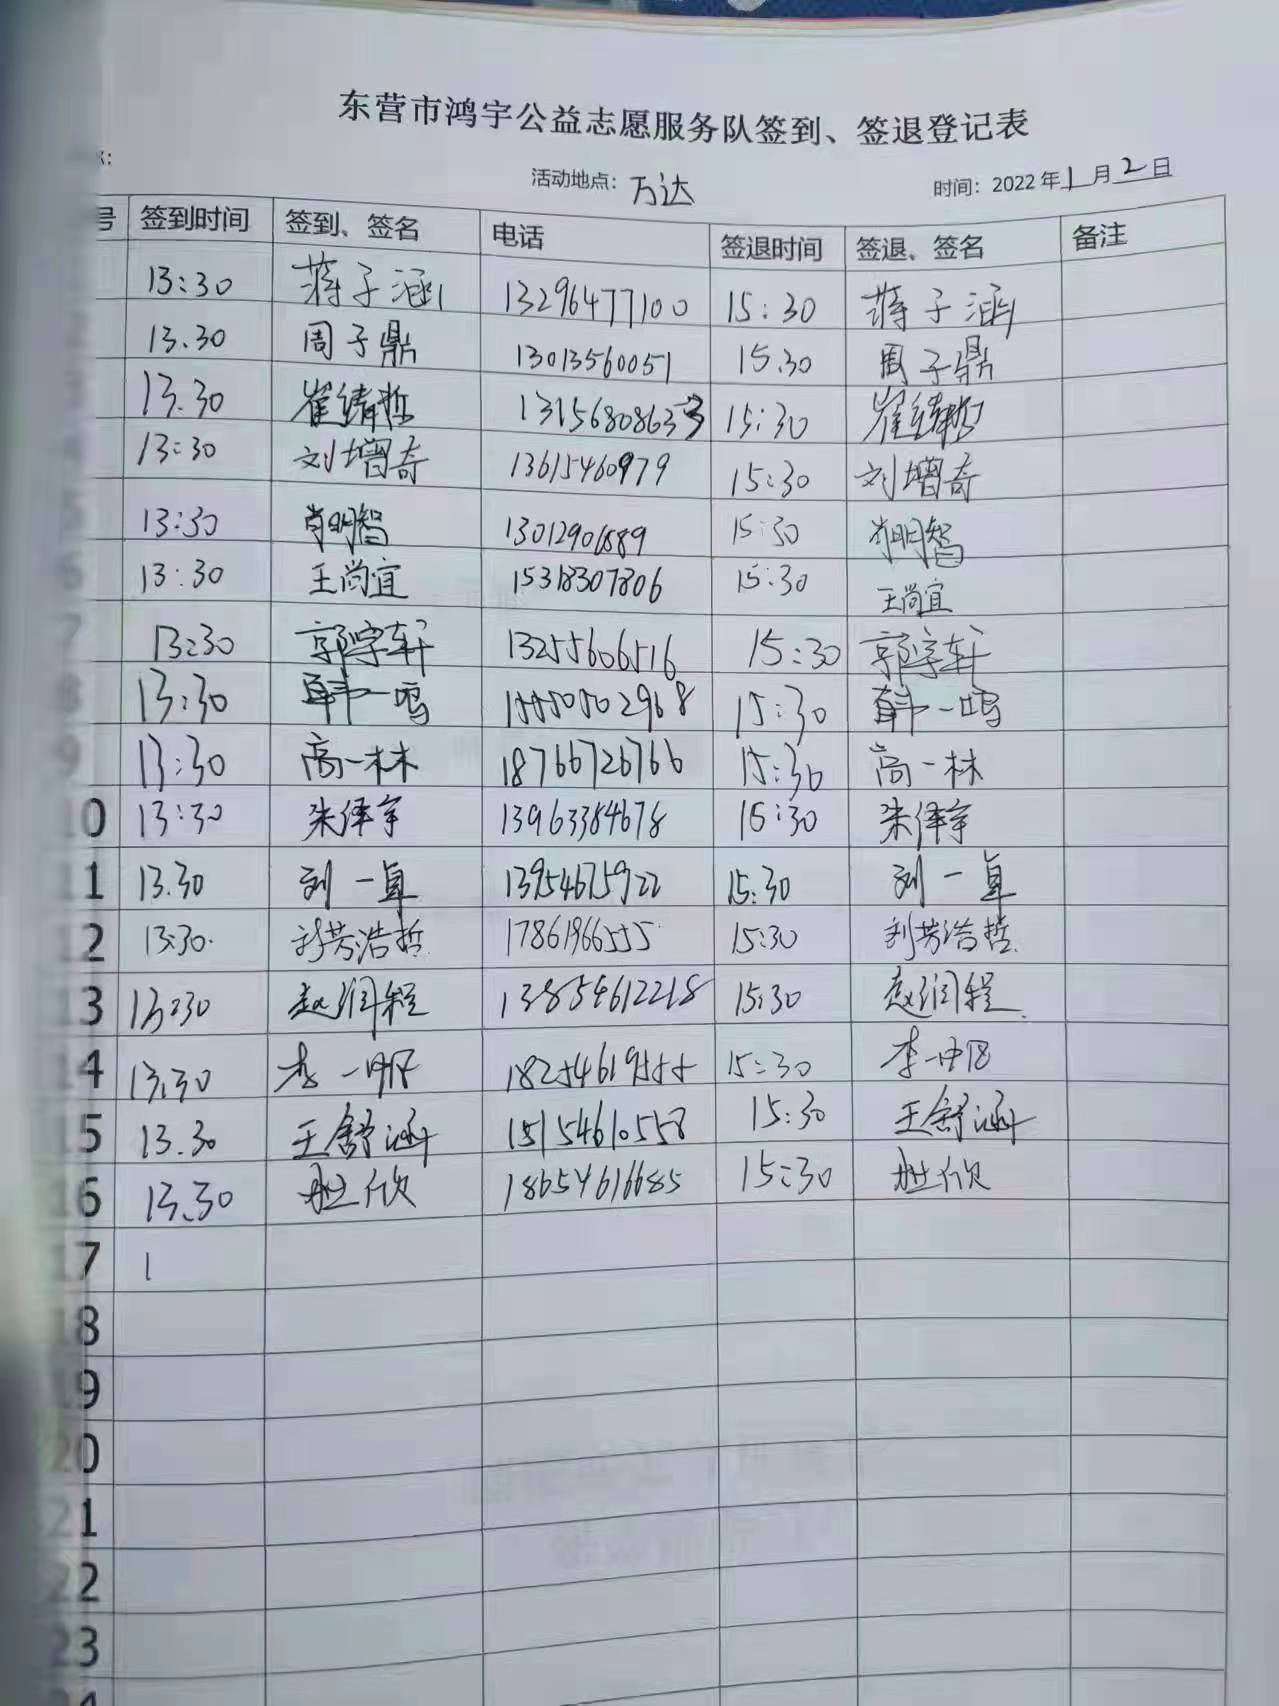 东营市鸿宇公益志愿服务队签到、签退登记表
活动地点：万达 时间：2022年1月2日
号 签到时间 签到、签名 电话 签退时间 签退、签名 备注
13:30 蒋子涵 13296477100 15:30 蒋子涵
2 13.30 周子鼎 13013560051 15.30 周子鼎
3 13.30 崔绪哲 13156808633 15:30 崔绪哲
4 13:30 刘增奇 13615460979 15:30 刘增奇
5 13:30 肖明智 15:30 肖明智
6 13:30 王尚宜 15318307806 15:30 王尚宜
7 13:30 郭宇轩 13255606516 15:30 郭宇轩
8 13:30 韩一鸣 15550502968 15:30 韩一鸣
9 13:30 高一林 18766726766 15:30 高一林
10 13:30 朱泽宇 13963384678 15:30 朱泽宇
11 13.30 刘一卓 13954675922 15:30 刘一卓
12 13:30. 刘芳浩哲. 17861966555. 15:30 刘芳浩哲.
13 13:30 赵润程 13854612218 15:30 赵润程.
14 13.30 李一 18254619555 15:30 李一
15 13.30 王舒涵 15154610558 15:30 王舒涵
16 13.30 欣 18654616685 15:30 欣
17 1
18
19
20
21
22
23
24